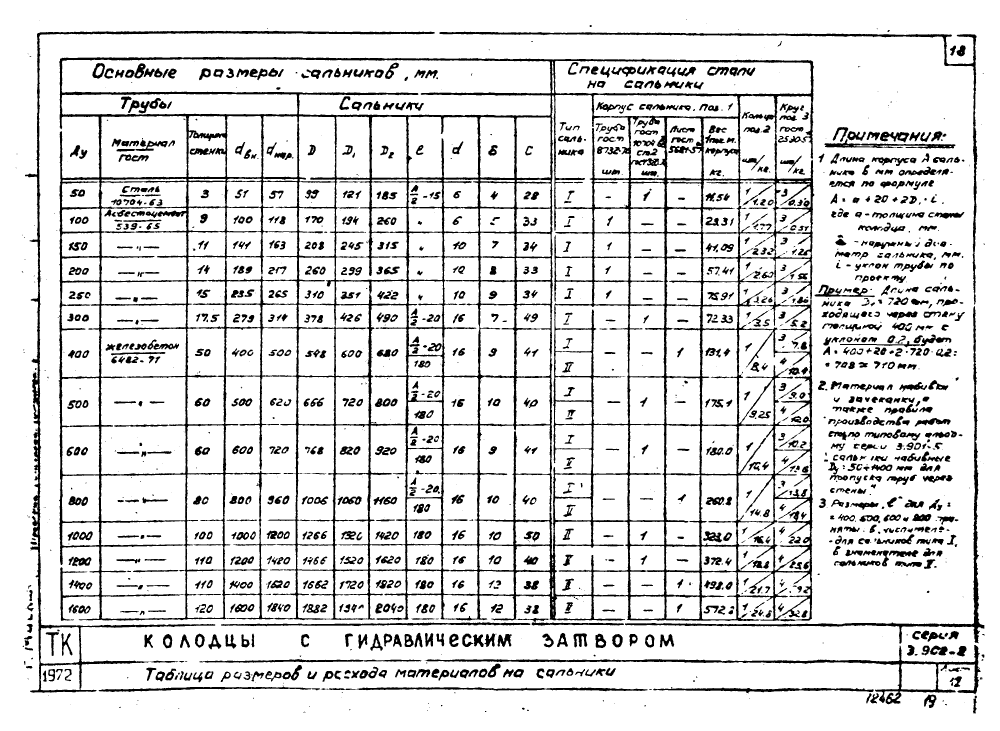 18
Основные размеры сальников, мм.
Спецификация стали на сальники
Трубы
Сальники
Тип сальника
Корпус сальника, Поз. 1
Кольцо поз. 2
Круг поз. 3 гост 2590-57
Ду | Материал гост | Толщина стенки | d вн. | d нар. | D | D₁ | D₂ | ℓ | d | δ | С | Труба гост 8732-70 шт. | Труба гост 10704-63 шт. | Лист гост | Вес 1 пог. м. корпуса кг. | шт/кг. | шт/кг.
50 | Сталь 10704-63 | 3 | 51 | 57 | 99 | 121 | 185 | А/2 -15 | 6 | 4 | 28 | I | — | 1 | — | 11.54 | 1/1.20 | 3/0.30
100 | Асбестоцемент 539-65 | 9 | 100 | 118 | 170 | 194 | 260 | „ | 6 | 5 | 33 | I | 1 | — | — | 23.31 | 1/1.77 | 3/0.51
150 | —„— | 11 | 141 | 163 | 208 | 245 | 315 | „ | 10 | 7 | 34 | I | 1 | — | — | 41,09 | 1/2.32 | 3/1.25
200 | —„— | 14 | 189 | 217 | 260 | 299 | 365 | „ | 10 | 8 | 33 | I | 1 | — | — | 57.41 | 1/2.60 | 3/1.56
250 | —„— | 15 | 235 | 265 | 310 | 351 | 422 | „ | 10 | 9 | 34 | I | 1 | — | — | 75.91 | 1/3.26 | 3/1.86
300 | —„— | 17.5 | 279 | 314 | 378 | 426 | 490 | А/2 -20 | 16 | 7 | 49 | I | — | 1 | — | 72.33 | 1/3.5 | 3/5.2
400 | железобетон 6482-71 | 50 | 400 | 500 | 548 | 600 | 680 | А/2 -20 / 180 | 16 | 9 | 41 | I II | — | — | 1 | 131,4 | 1/8,4 | 3/7.8 4/10.4
500 | —„— | 60 | 500 | 620 | 666 | 720 | 800 | А/2 -20 / 180 | 16 | 10 | 40 | I II | — | 1 | — | 175.1 | 1/9.25 | 3/9.0 4/12.0
600 | —„— | 60 | 600 | 720 | 768 | 820 | 920 | А/2 -20 / 180 | 16 | 9 | 41 | I II | — | 1 | — | 180.0 | 1/12,4 | 3/10.2 4/13.6
800 | —„— | 80 | 800 | 960 | 1006 | 1060 | 1160 | А/2 -20 / 180 | 16 | 10 | 40 | I II | — | — | 1 | 260.8 | 1/14.8 | 3/13.8 4/18.4
1000 | —„— | 100 | 1000 | 1200 | 1266 | 1320 | 1420 | 180 | 16 | 10 | 50 | II | — | 1 | — | 323,0 | 1/16.4 | 4/22.0
1200 | —„— | 110 | 1200 | 1420 | 1466 | 1520 | 1620 | 180 | 16 | 10 | 40 | II | — | 1 | — | 372.4 | 1/19.8 | 4/25.6
1400 | —„— | 110 | 1400 | 1620 | 1662 | 1720 | 1820 | 180 | 16 | 12 | 38 | II | — | — | 1 | 498.0 | 1/21.7
1600 | —„— | 120 | 1600 | 1840 | 1882 | 2040 | 180 | 16 | 12 | 38 | II | — | — | 1 | 1/24.8 | 4/32.8
Примечания:
1 Длина корпуса А сальника в мм определяется по формуле
А = а + 20 + 2D₁ · i.
где а - толщина стены колодца, мм.
- наружный диаметр сальника, мм.
i - уклон трубы по проекту
Пример: Длина сальника D₁ = 720 мм, проходящего через стену толщиной 400 мм с уклоном 0.2, будет
А = 400 + 20 + 2 · 720 · 0,2 = = 708 ≈ 710 мм.
2. Материал набивки и зачеканки, а также правила производства работ см. по типовому альбому серии 3.901-5 "сальники набивные Ду = 50÷1400 мм для пропуска труб через стены."
3 Размеры „ℓ” для Ду = = 400, 500, 600 и 800 приняты: в числителе - для сальников типа I, в знаменателе для сальников типа II.
ТК
КОЛОДЦЫ С ГИДРАВЛИЧЕСКИМ ЗАТВОРОМ
серия 3.902-2
1972
Таблица размеров и расхода материалов на сальники
Лист 12
12462 19